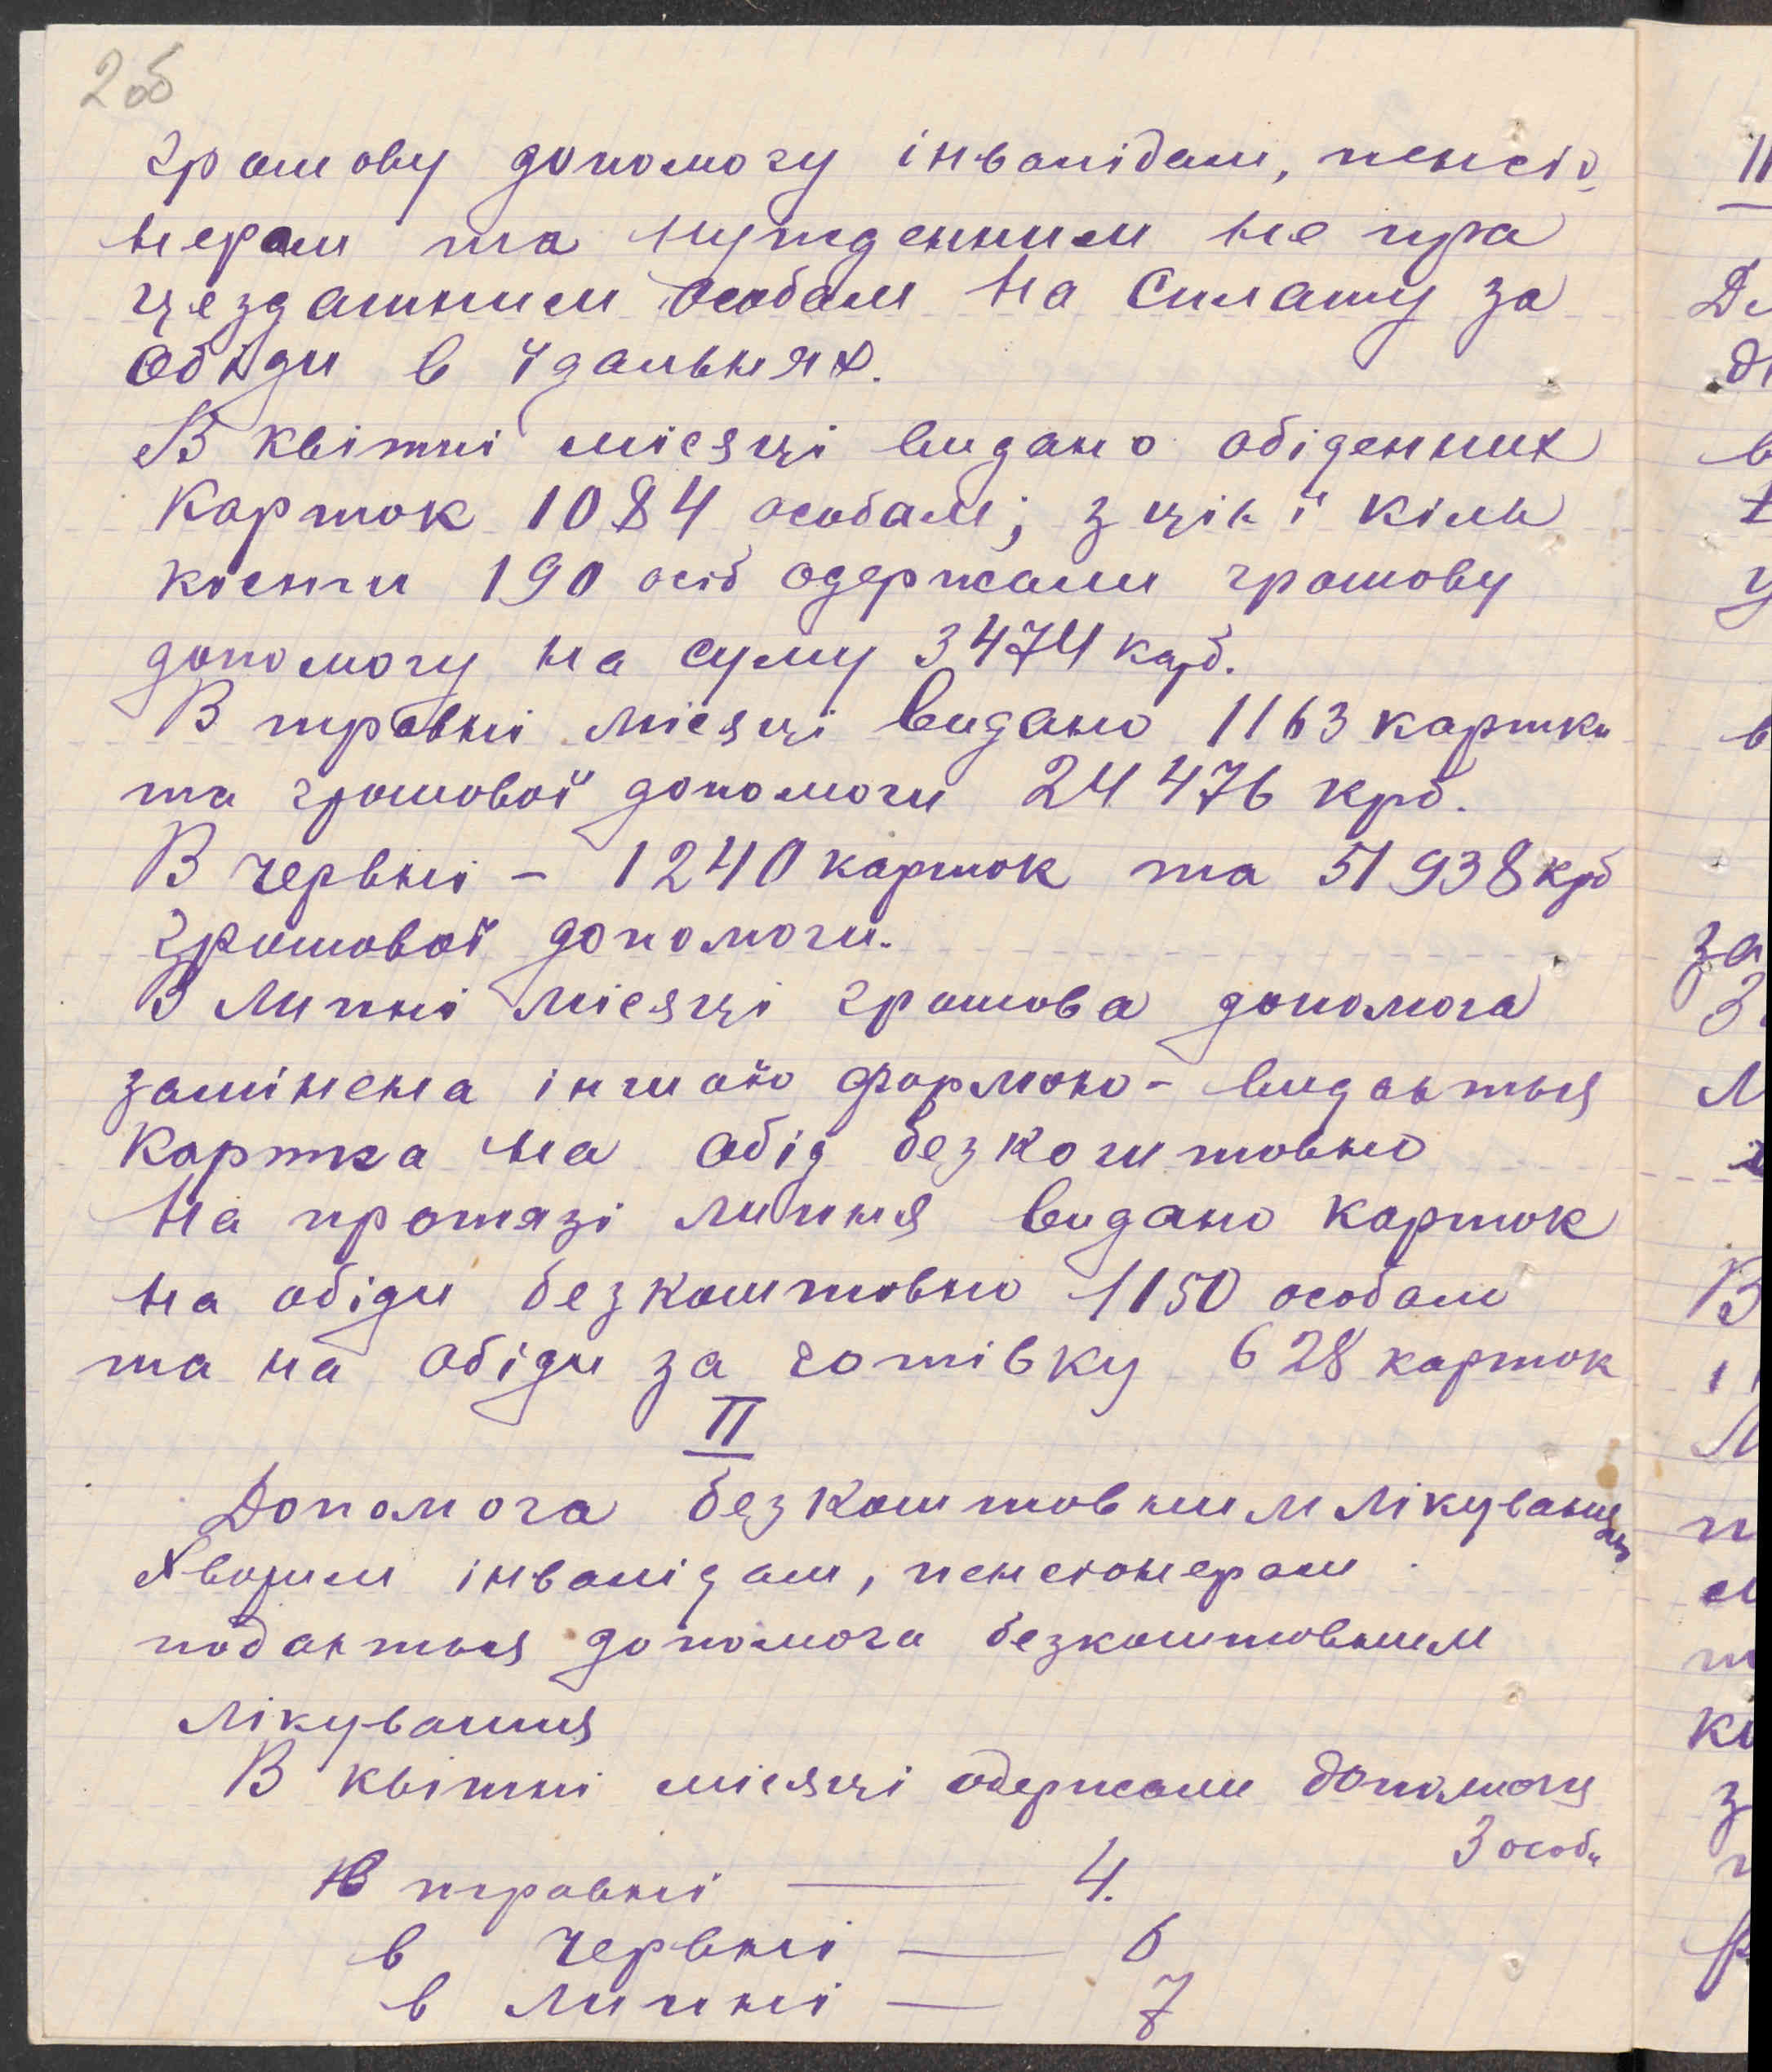 2 об
грошову допомогу інвалідам, пенсіо
нерам та нужденним не пра
цездатним особам на сплату за
обіди в їдальнях.
В квітні місяці видано обіденних
карток 1084 особам; з цієї кіль
кости 190 осіб одержали грошову
допомогу на суму 3474 карб.
В травні місяці видано 1163 картки
та грошової допомоги 24476 крб.
В червні - 1240 карток та 51938 крб
грошової допомоги.
В липні місяці грошова допомога
замінена іншою формою - видається
картка на обід безкоштовно
На протязі липня видано карток
на обіди безкоштовно 1150 особам
та на обіди за готівку 628 карток
II
Допомога безкоштовним лікуванням
Хворим інвалідам, пенсіонерам
подається допомога безкоштовним
лікування
В квітні місяці одержали допомогу
3 особи
в травні — 4.
в червні — 6
в липні — 7